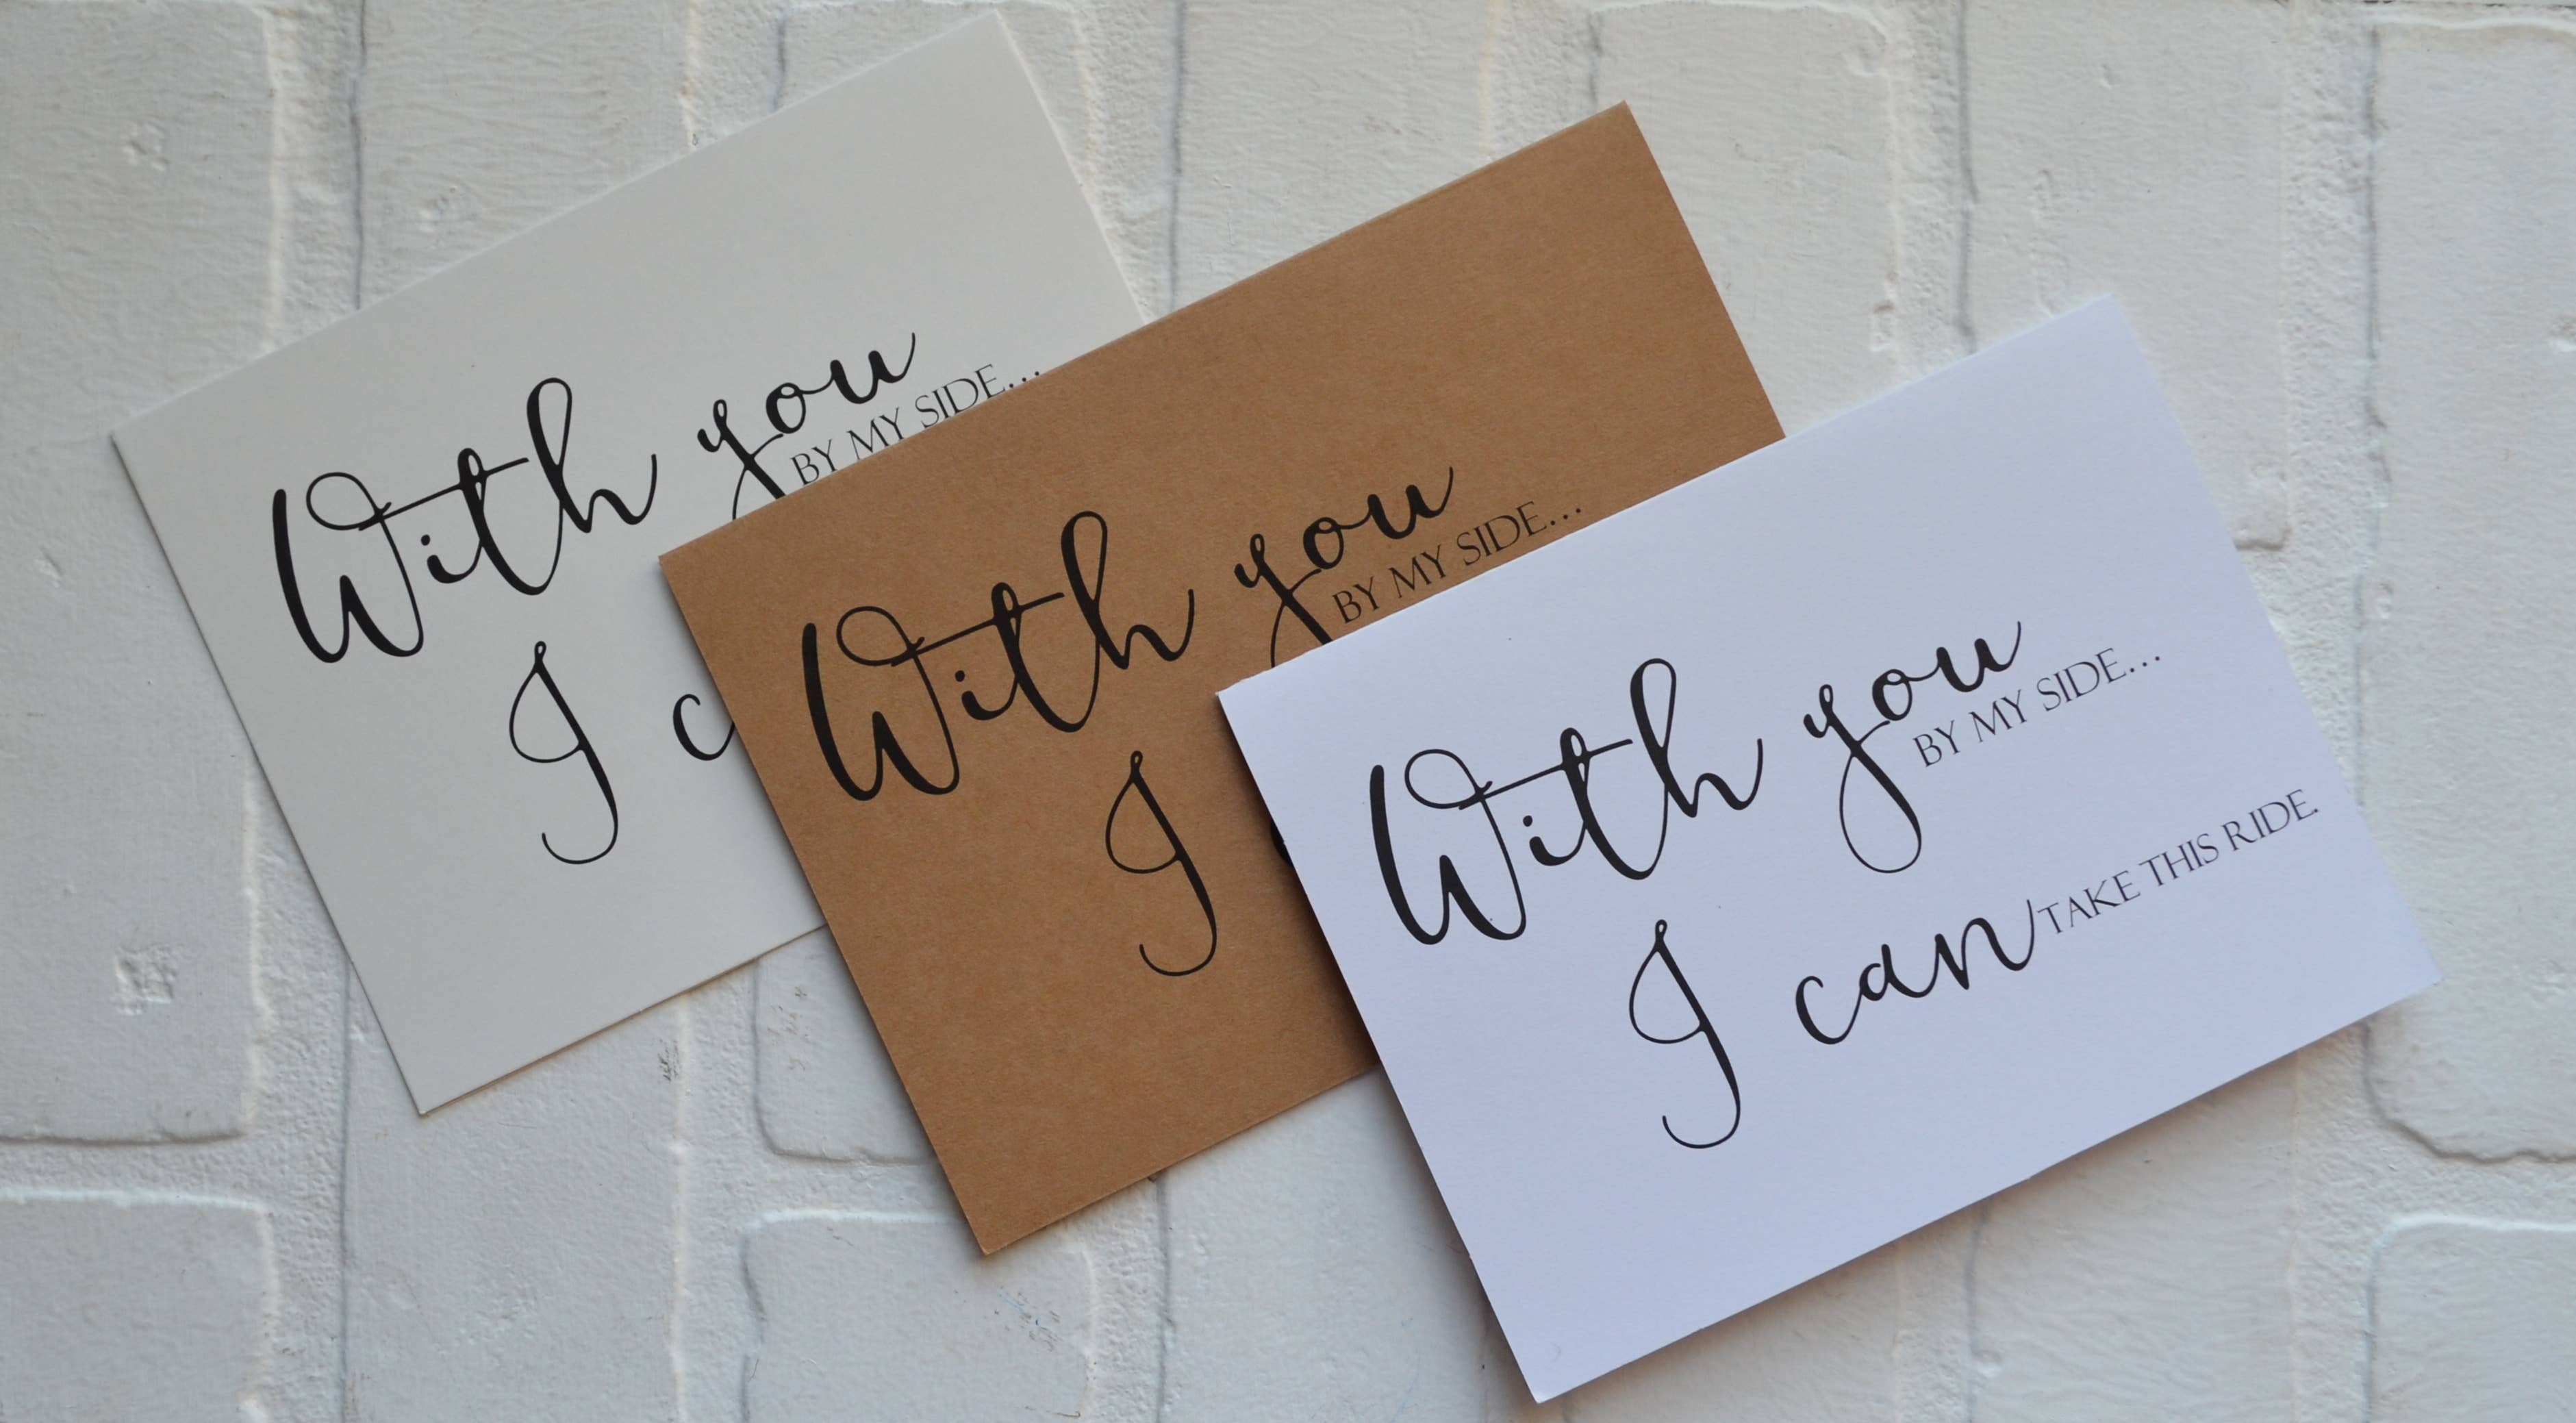 With you
BY MY SIDE...
I c
With you
BY MY SIDE...
I
With you
BY MY SIDE...
I can TAKE THIS RIDE.